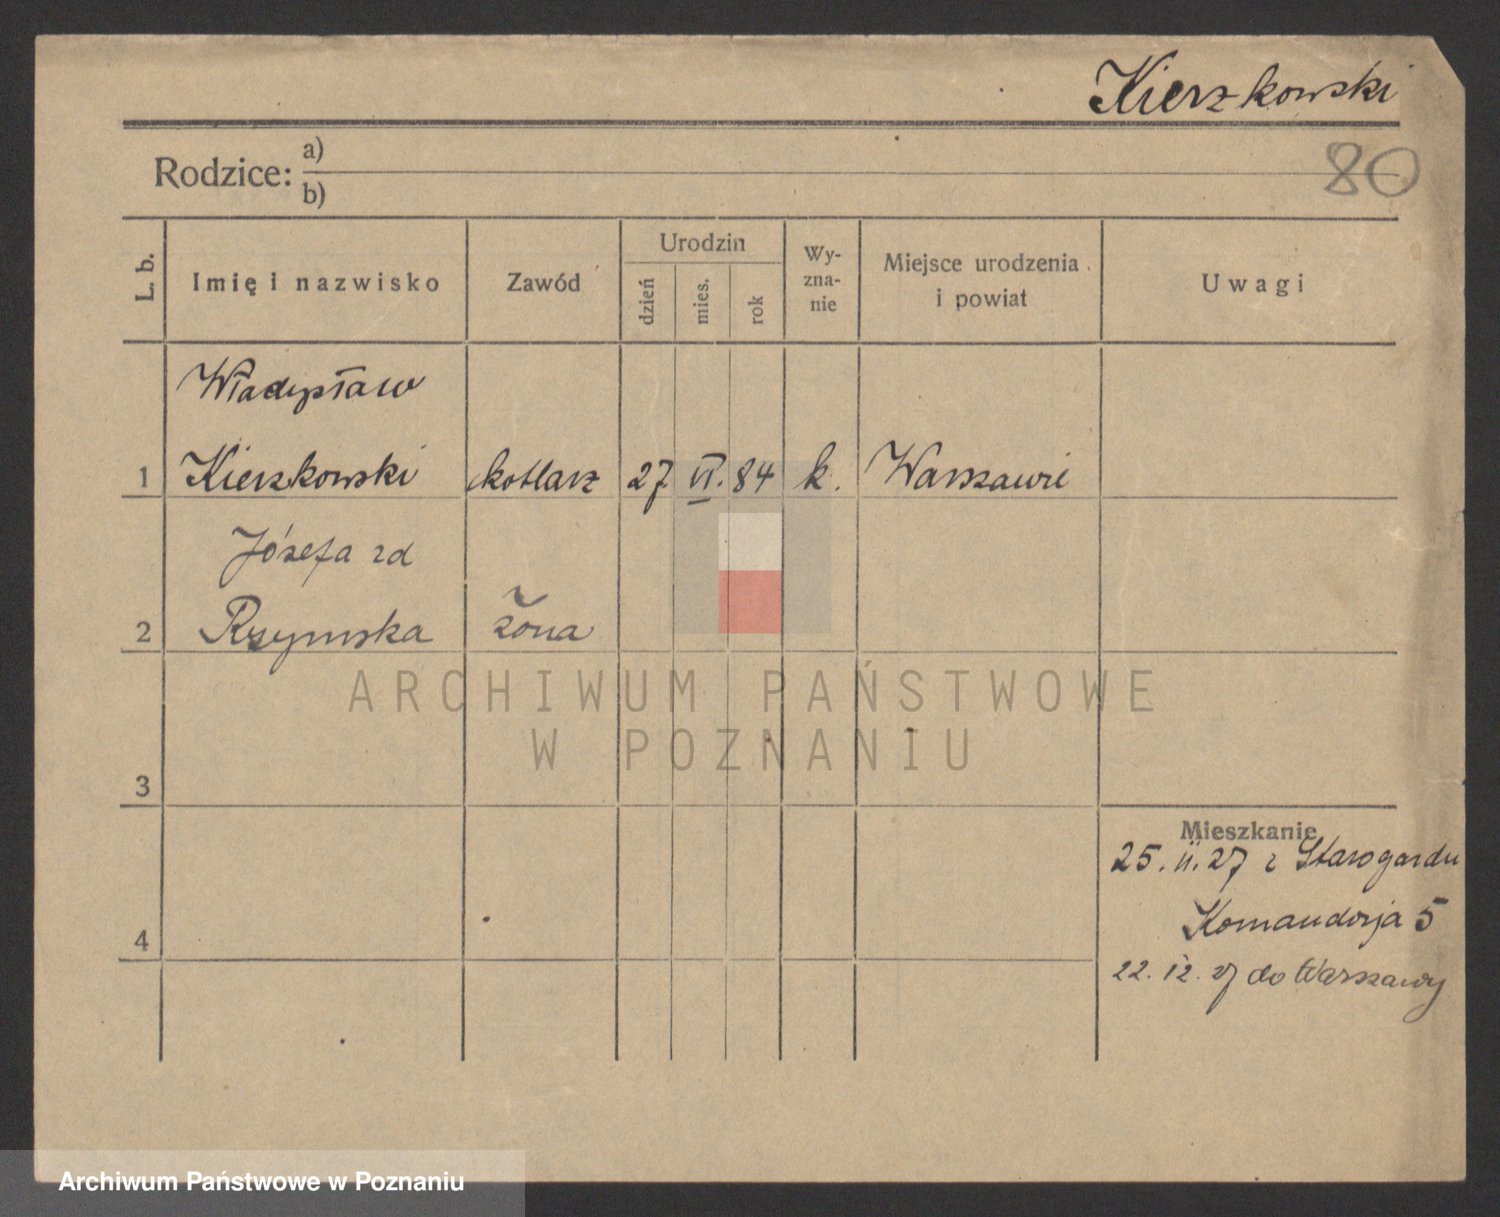 Kierzkowski
80
Rodzice: a)
b)
L. b.
Imię i nazwisko
Zawód
Urodzin
dzień
mies.
rok
Wy-
zna-
nie
Miejsce urodzenia
i powiat
Uwagi
Władysław
1 Kierzkowski kotlarz 27 VI. 84 k. Warszawie
Józefa zd
2 Rzymska żona
3
4
Mieszkanie
25. II. 27 z Starogardu
Komandorja 5
22. 12. 27 do Warszawy
ARCHIWUM PAŃSTWOWE
W POZNANIU
Archiwum Państwowe w Poznaniu